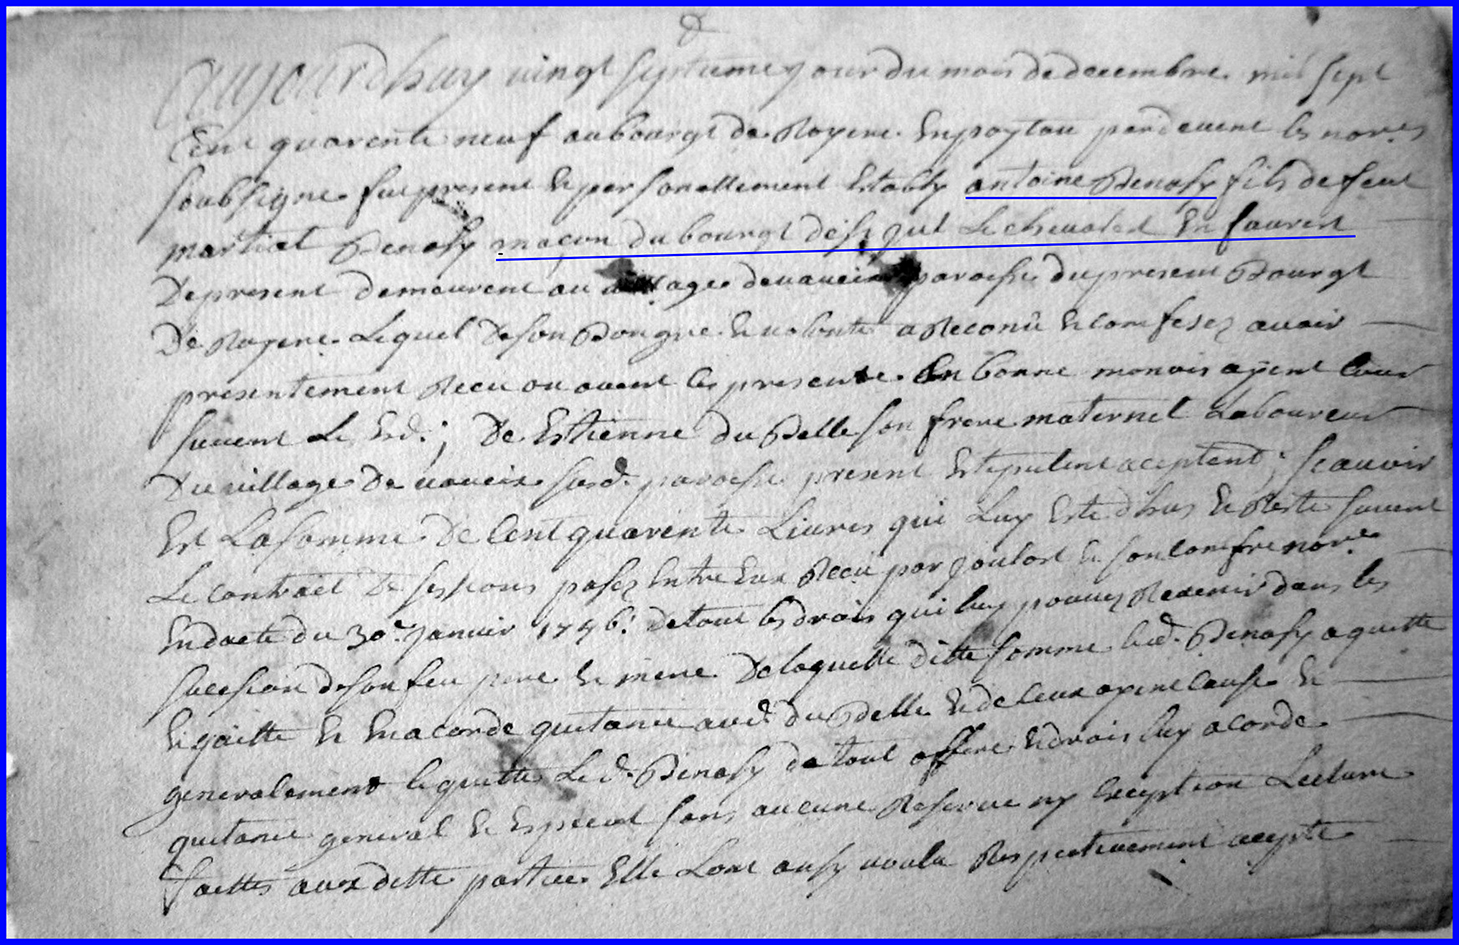 Aujourdhuy vingt septieme jour du mois de decembre mil sept
Cent quarente neuf au bourgt de Royere En poytou pardevent les nores
Soubsigne fut present Et personellement Estably antoine Benassy fils de feut
martial Benassy maçon du bourgt de St quit Le chevaled En
De present demeurent au village de vaveix paroisse du present Bourgt
De Royere Lequel De son Bon gre Et volonte a Reconu Et confesez avoir
presentement Receu ou avent les presente En bonne monois ayent cour
suivent Le Ed.; De Estienne du Belle son frere maternel Laboureur
Du village De vaveix susd. paroisse present Estipulent aceptent; scauoir
Est La somme De Cent quarente Livres qui Luy Este dhus De Reste suivent
Le contract De sessions passez Entre Eux Receu par Et son confre nore
En dacte du 30e Janvier 1746: De tout les drois qui luy pouvez Revenir dans les
sucession De son feu pere Et mere De laquelle ditte somme led. Benassy a quitte
Et quitte Et En acorde quitance aud. du Belle Et de ceux ayent cause Et
generalement le quitte Le d. Benassy de tout affere Et drois luy acorde
quitance general Et Especial sans aucune Reserve ny Exception Lecture
faittes aux ditte parties Elle Lont ausy voulu Respectivement acepte